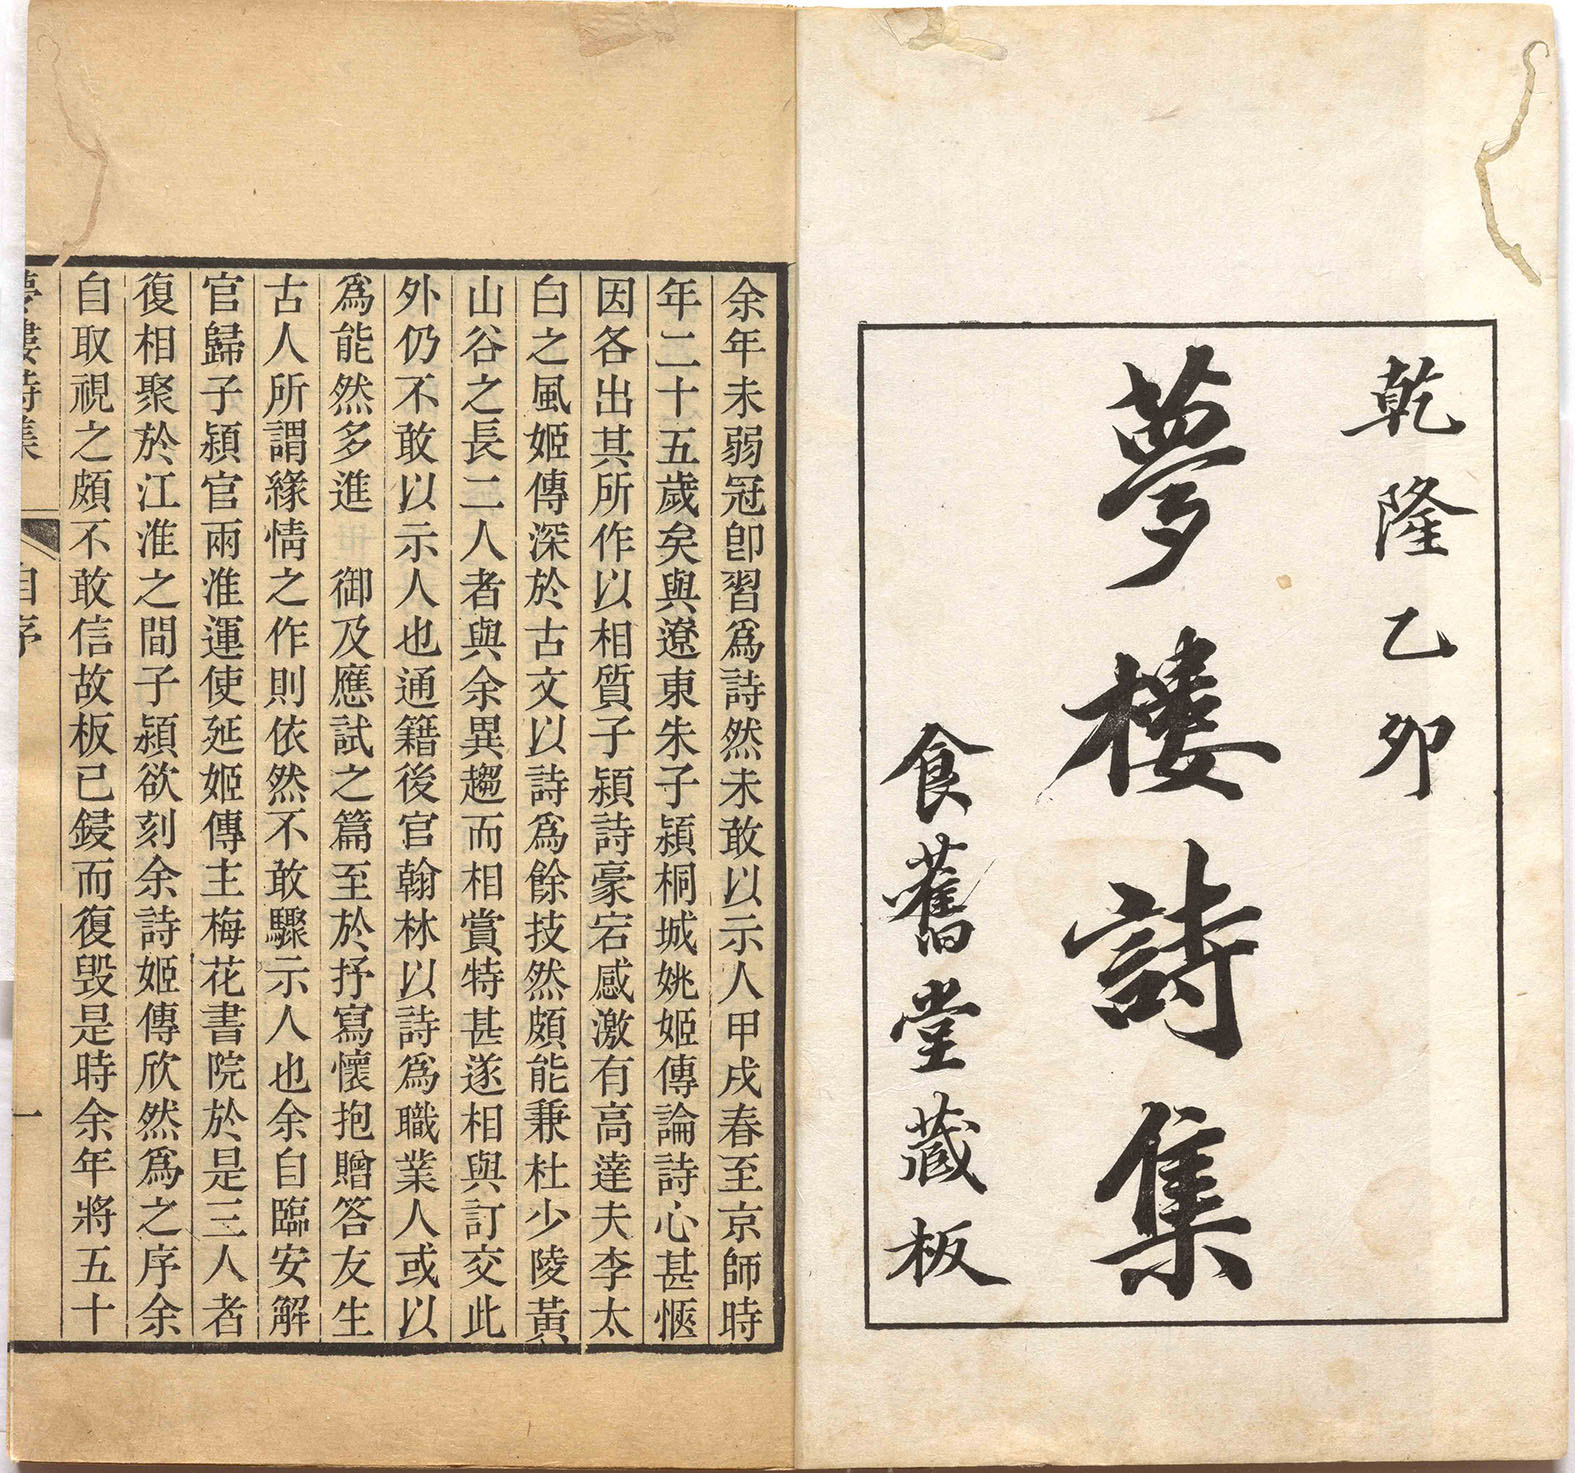 乾隆乙夘
夢樓詩集
食舊堂藏板
余年未弱冠卽習爲詩然未敢以示人甲戌春至京師時
年二十五歲矣與遼東朱子潁桐城姚姬傳論詩心甚愜
因各出其所作以相質子潁詩豪宕感激有高達夫李太
白之風姬傳深於古文以詩爲餘技然頗能兼杜少陵黃
山谷之長二人者與余異趨而相賞特甚遂相與訂交此
外仍不敢以示人也通籍後官翰林以詩爲職業人或以
爲能然多進　御及應試之篇至於抒寫懷抱贈答友生
古人所謂緣情之作則依然不敢驟示人也余自臨安解
官歸子潁官兩淮運使延姬傳主梅花書院於是三人者
復相聚於江淮之間子潁欲刻余詩姬傳欣然爲之序余
自取視之頗不敢信故板已鋟而復毀是時余年將五十
夢樓詩集　自序　一